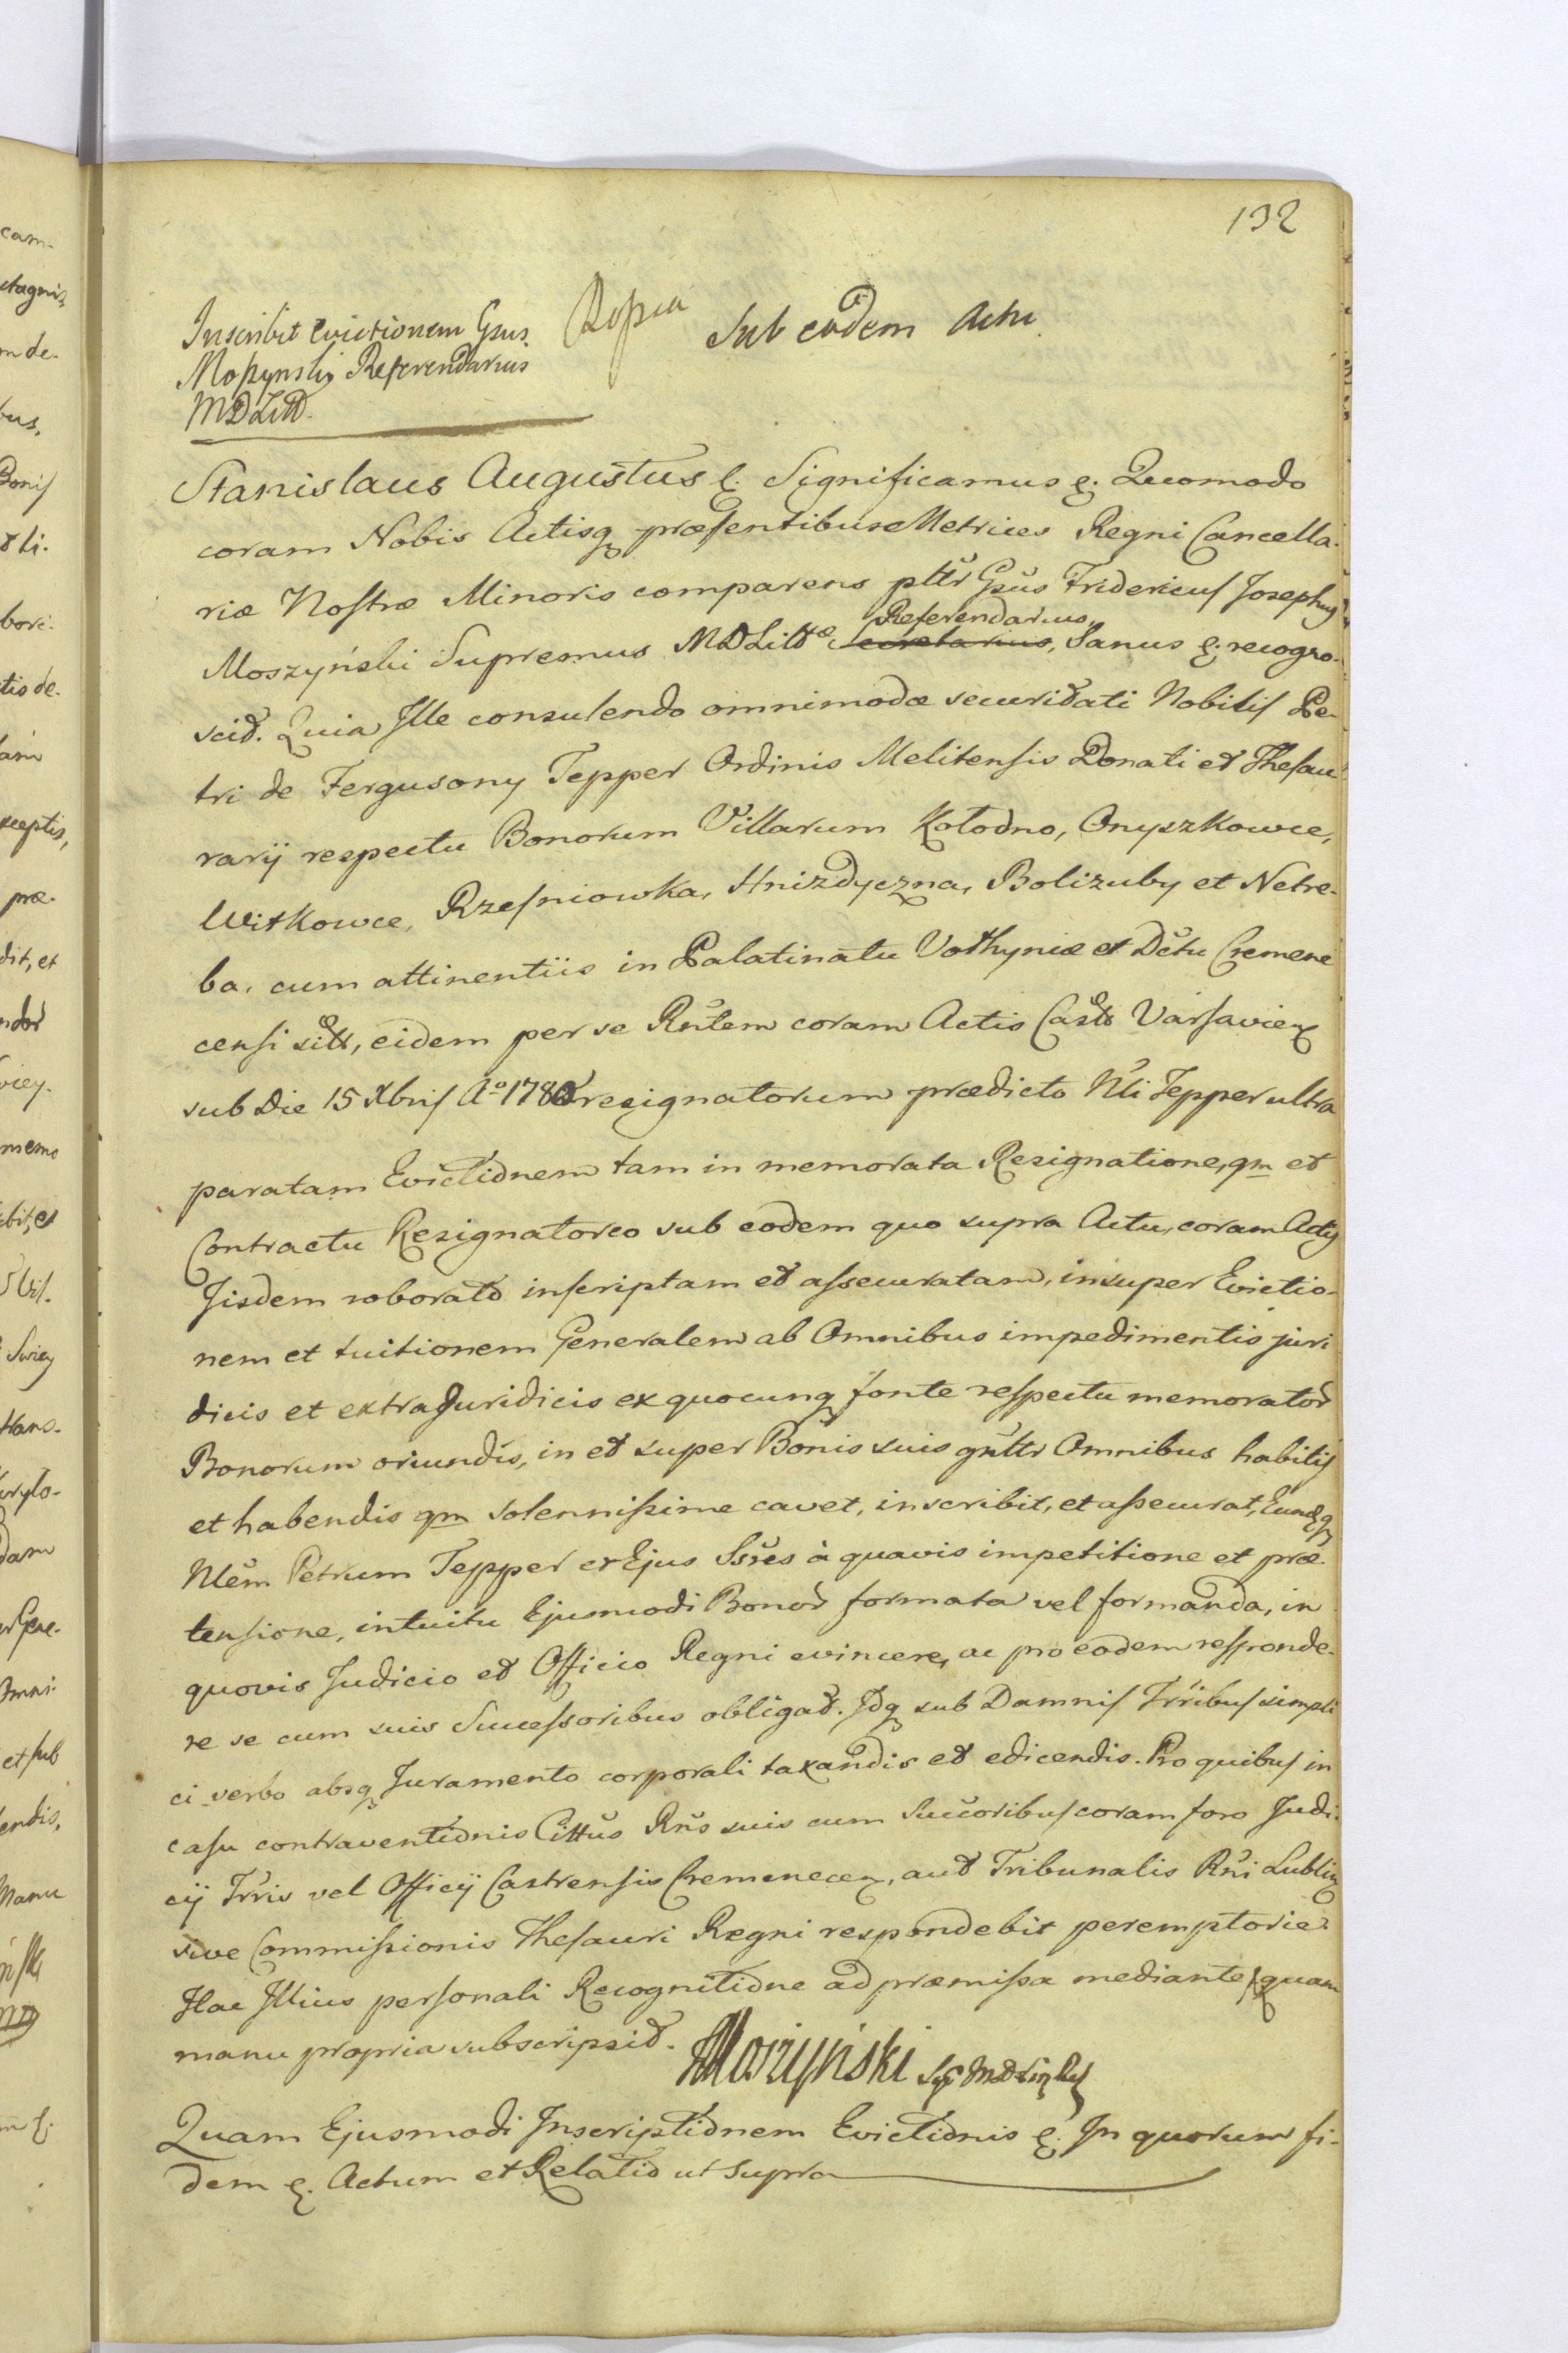 132
Inscribit Evictionem Gsus
Moszynski Referendarius
MDLitt.
Sub eodem Actu
Stanislaus Augustus &. Significamus &. Quomodo
coram Nobis Actisq præsentibus Metrices Regni Cancella-
riæ Nostræ Minoris comparens pttr Gsus Fridericus Josephus
Moszyński Supremus MDLittæ Secretarius, Referendarius, Sanus &. recogno-
scit. Quia Ille consulendo omnimodæ securitati Nobilis Pe-
tri de Fergusony Tepper Ordinis Melitensis Donati et Thesau
rarij respectu Bonorum Villarum Kołodno, Onyszkowce,
Witkowce, Rzesniowka, Hnizdyczna, Bolizuby et Netre-
ba, cum attinentiis in Palatinatu Vołhyniæ et Dctu Cremene
censi sitt, eidem per se Rntem coram Actis Casts Varsavien
sub Die 15 Xbris Ao 1780 resignatorum prædicto Nli Tepper ultra
paratam Evictionem tam in memorata Resignatione, qm et
Contractu Resignatoreo sub eodem quo supra Actu, coram Actis
Iisdem roborato inscriptam et assecuratam, insuper Evictio-
nem et tuitionem Generalem ab Omnibus impedimentis juri
dicis et extrajuridicis ex quocunq fonte respectu memorator
Bonorum oriundis, in et super Bonis suis gnttr Omnibus habitis
et habendis qm solennissime cavet, inscribit, et assecurat, Eundq
Nlem Petrum Tepper et Ejus Ssres à quavis impetitione et præ-
tensione, intuitu Ejusmodi Bonor formata vel formanda, in
quovis Judicio et Officio Regni evincere, ac pro eodem responde-
re se cum suis Successoribus obligat. Idq sub Damnis Trribus simpli
ci verbo absq Juramento corporali taxandis et edicendis. Pro quibus in
casu contraventionis Cittus Rns suis cum Succoribus coram foro Judi-
cij Trris vel Officij Castrensis Cremenecen, aut Tribunalis Rni Lublin
sive Commissionis Thesauri Regni respondebit peremptorie
Hac Illius personali Recognitione ad præmissa mediante, quam
manu propria subscripsit. FMoszyński
Quam Ejusmodi Inscriptionem Evictionis &. In quorum fi-
dem &. Actum et Relatio ut supra